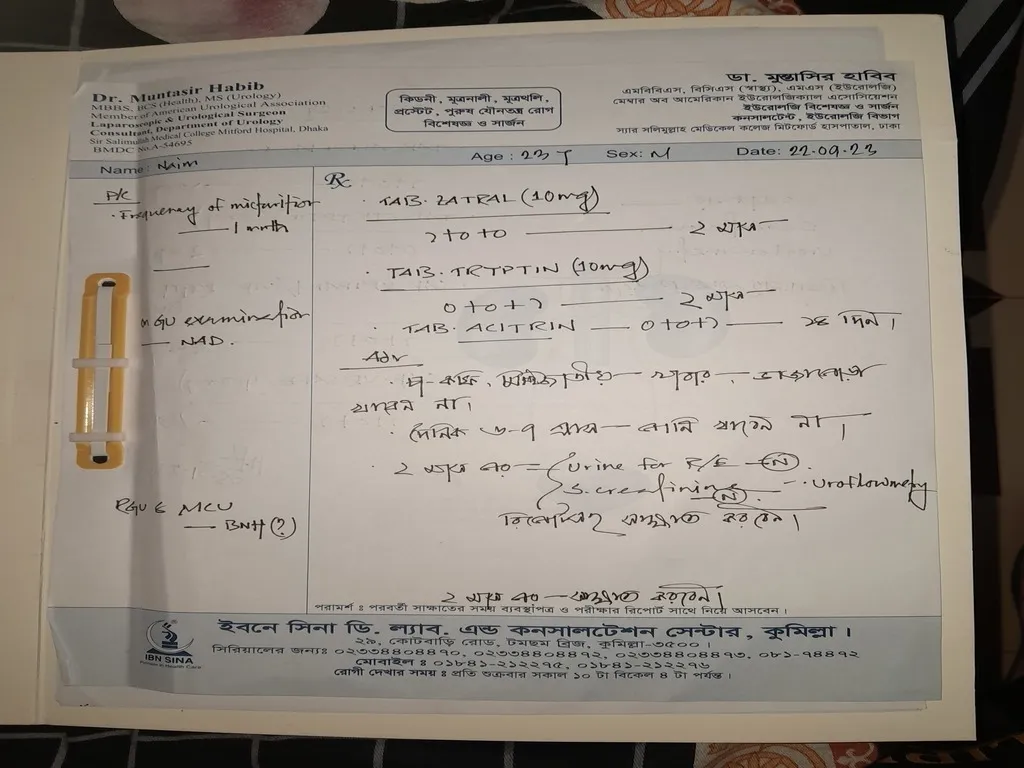 Dr. Muntasir Habib
MBBS, BCS (Health), MS (Urology)
Member of American Urological Association
Laparoscopic & Urological Surgeon
Consultant, Department of Urology
Sir Salimullah Medical College Mitford Hospital, Dhaka
BMDC No.A-54695
কিডনী, মূত্রনালী, মূত্রথলি,
প্রস্টেট, পুরুষ যৌনতন্ত্র রোগ
বিশেষজ্ঞ ও সার্জন
ডা. মুন্তাসির হাবিব
এমবিবিএস, বিসিএস (স্বাস্থ্য), এমএস (ইউরোলজি)
মেম্বার অব আমেরিকান ইউরোলজিক্যাল এসোসিয়েশন
ইউরোলজি বিশেষজ্ঞ ও সার্জন
কনসালটেন্ট, ইউরোলজি বিভাগ
স্যার সলিমুল্লাহ মেডিকেল কলেজ মিটফোর্ড হাসপাতাল, ঢাকা
Name: Naim Age : 23 Y Sex: M Date: 22.09.23
P/C
· Frequency of micturition
— 1 month
on GU examination
— NAD.
RGU & MCU
— BNH (?)
Rx
· TAB. ZATRAL (10mg)
১+০+০ — ২ মাস
· TAB. TRYPTIN (10mg)
০+০+১ — ২ মাস
· TAB. ACITRIN — ০+০+১ — ১৪ দিন।
Adv
· চা-কফি, খাবার,
খাবেন না।
· দৈনিক ৬-৭ গ্লাস পানি খাবেন না।
· ২ মাস পর = Urine for R/E — (N).
S. creatinine — (N). -- Uroflowmetry
রিপোর্টসহ সাক্ষাত করবেন।
২ মাস পর — সাক্ষাত করবেন।
পরামর্শ : পরবর্তী সাক্ষাতের সময় ব্যবস্থাপত্র ও পরীক্ষার রিপোর্ট সাথে নিয়ে আসবেন।
IBN SINA
ইবনে সিনা ডি. ল্যাব. এন্ড কনসালটেশন সেন্টার, কুমিল্লা।
২৯, কোটবাড়ি রোড, টমছম ব্রিজ, কুমিল্লা-৩৫০০।
সিরিয়ালের জন্যঃ ০২৩৩৪৪০৪৪৯০, ০২৩৩৪৪০৪৪৯২, ০২৩৩৪৪০৪৪৯৩, ০৮১-৭৪৪৯২
মোবাইল : ০১৮৪১-২১২২৭৫, ০১৮৪১-২১২২৭৬
রোগী দেখার সময় : প্রতি শুক্রবার সকাল ১০ টা বিকেল ৪ টা পর্যন্ত।